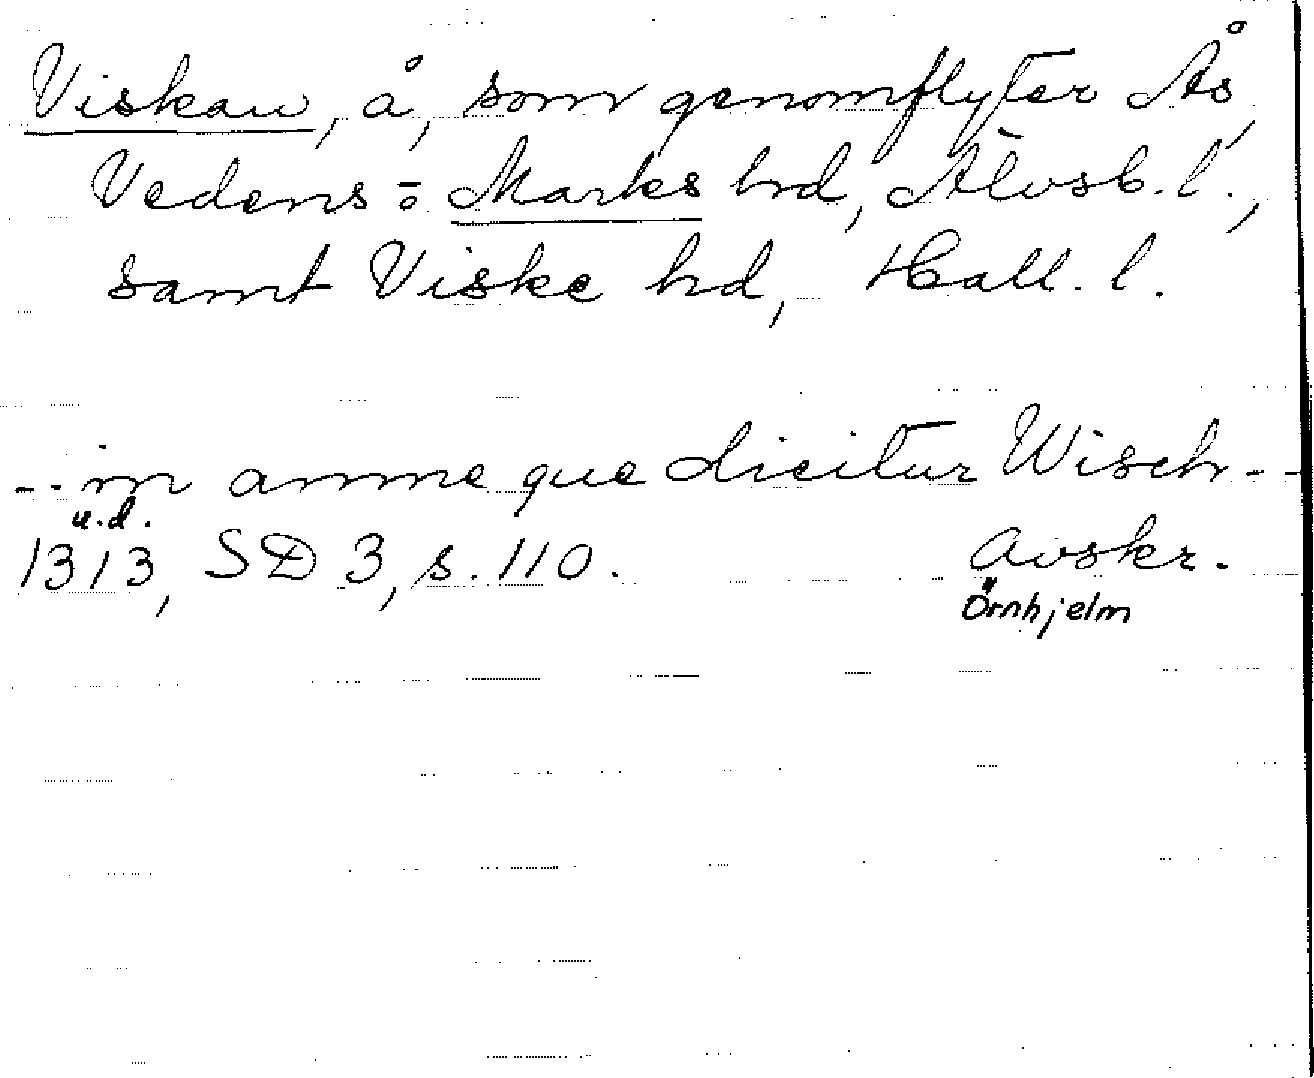 Viskan, å, som genomflyter Ås,
Vedens = Marks hd, Älvsb. l.,
samt Viske hd, Hall. l.
-- in amne que dicitur Wisch --
u.d.
1313, SD 3, s. 110. Avskr.
Örnhjelm